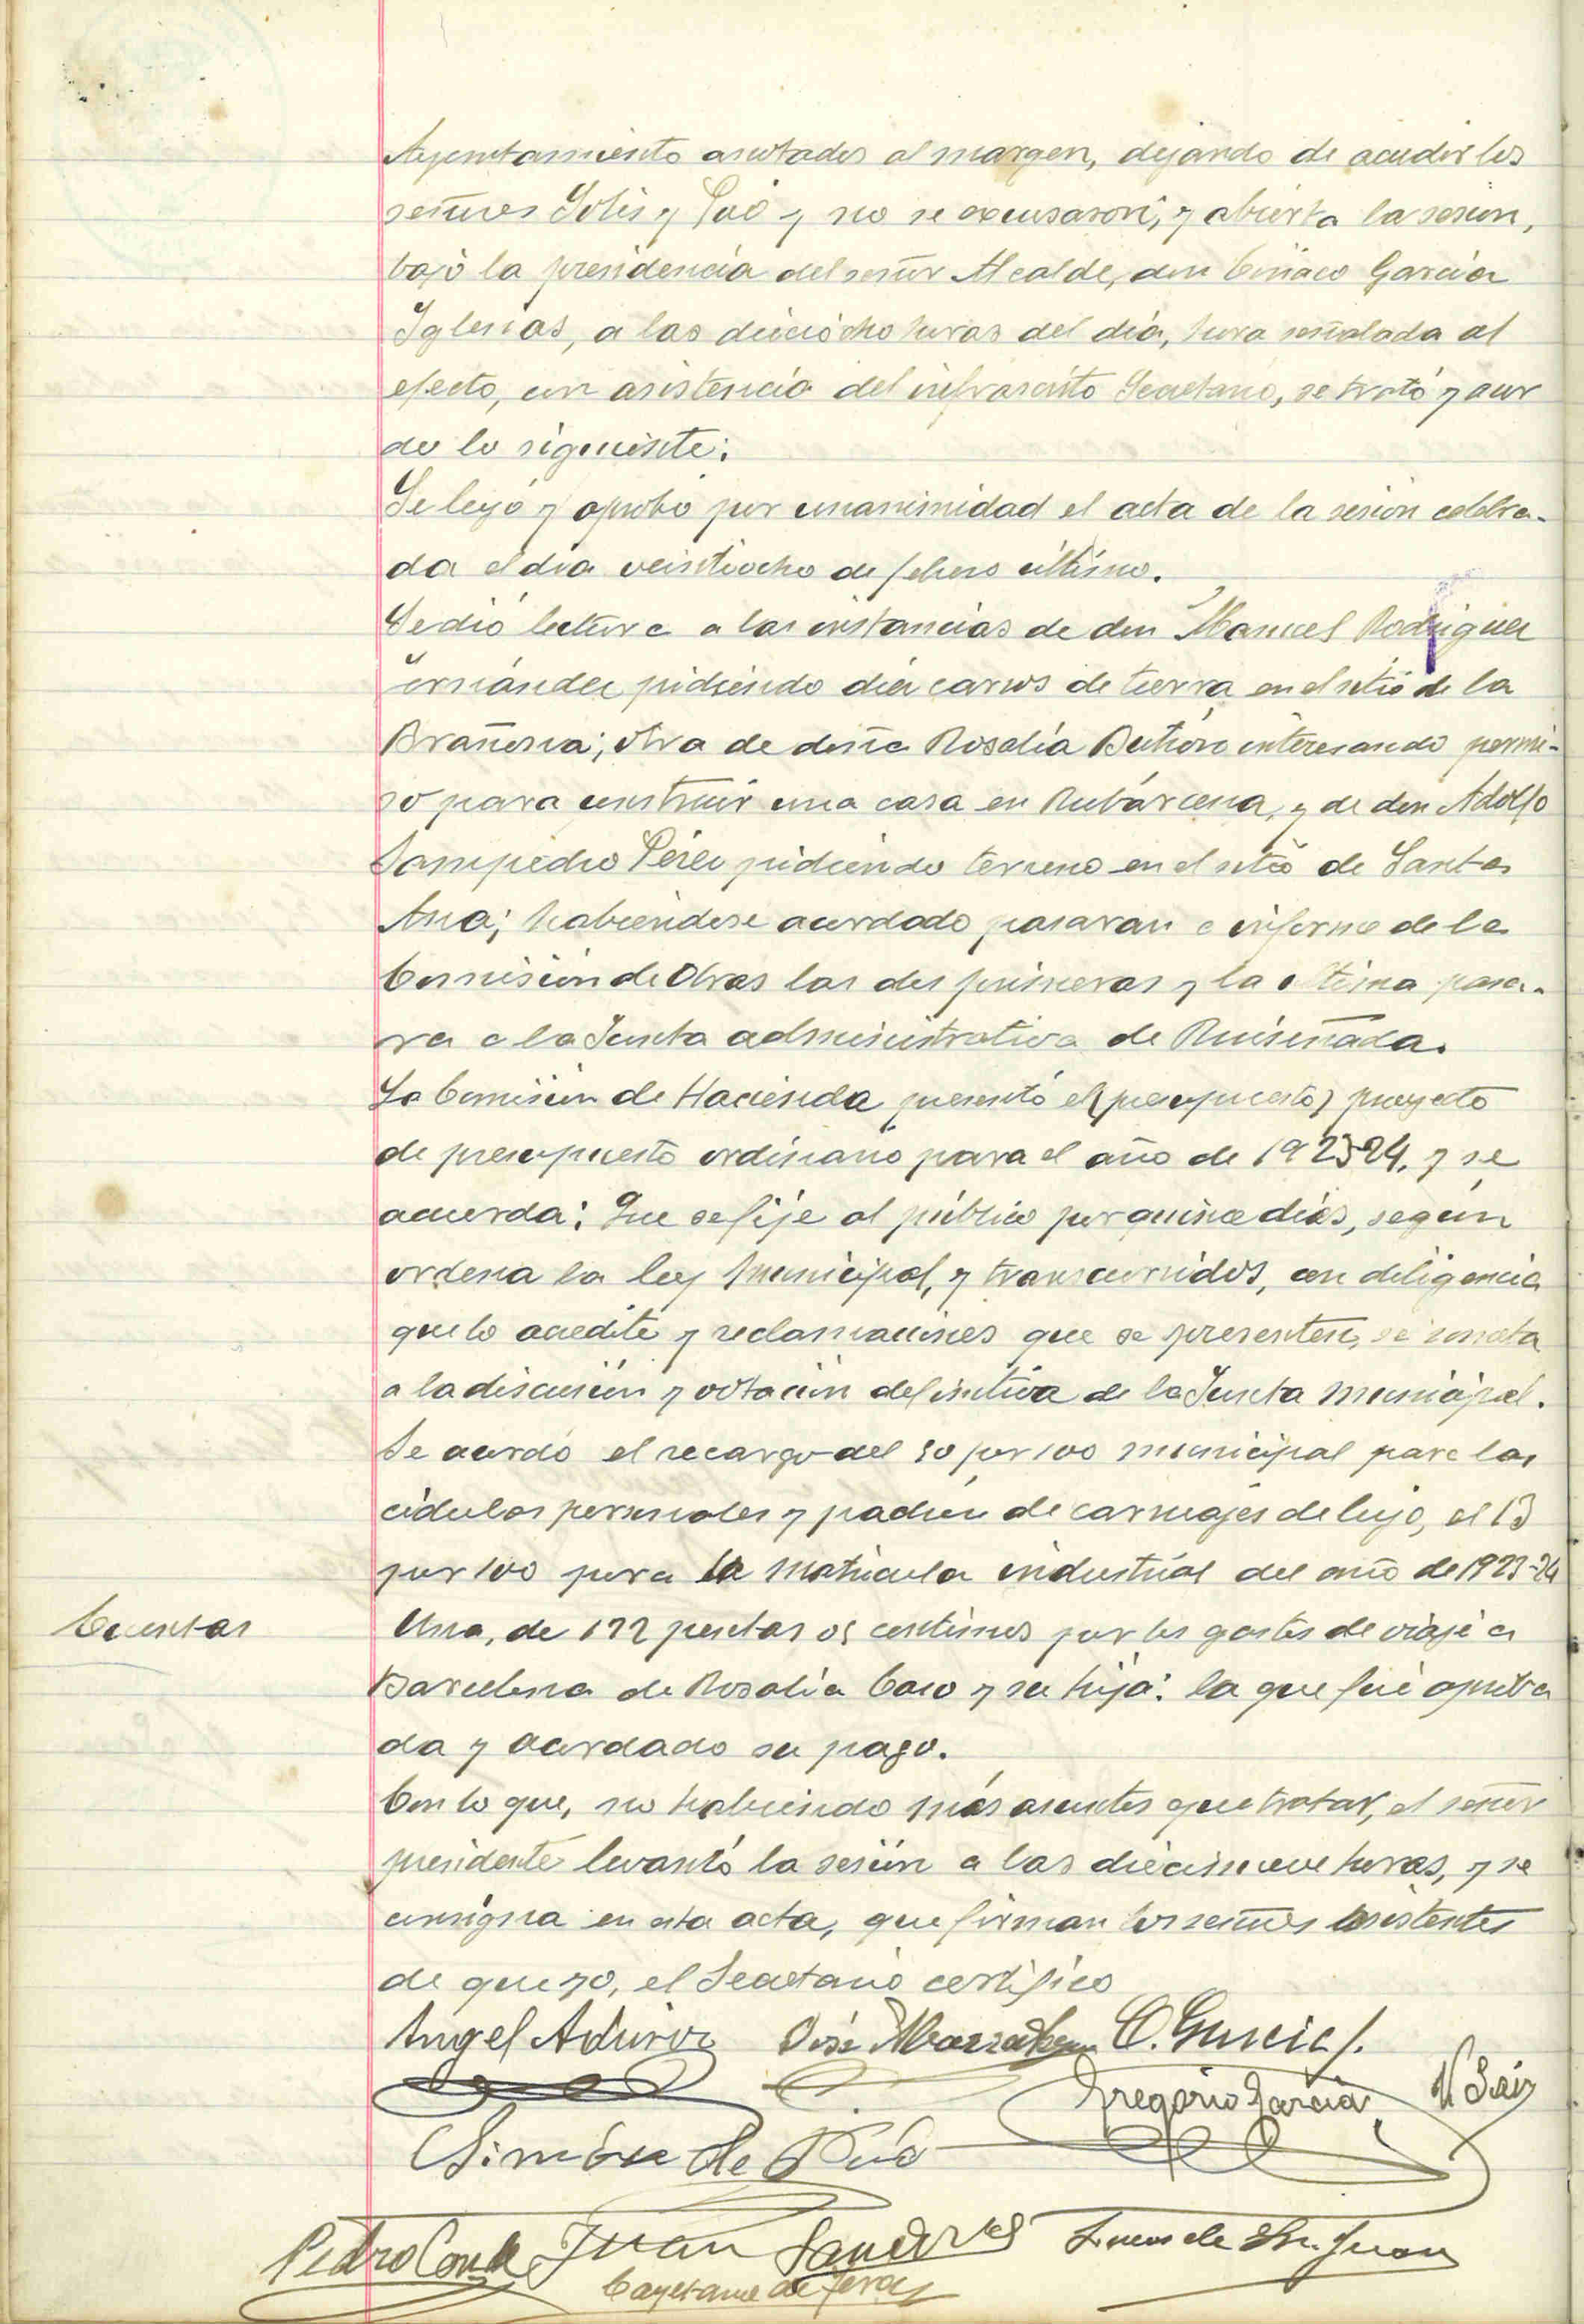 Ayuntamiento anotados al margen, dejando de acudir los
señores Solís y Pío y no se excusaron, y abierta la sesión,
bajo la presidencia del señor Alcalde, don Ciriaco García
Iglesias, a las dieciocho horas del día, hora señalada al
efecto, con asistencia del infrascrito Secretario, se trató y acor
do lo siguiente:
Se leyó y aprobó por unanimidad el acta de la sesión celebra-
da el día veintiocho de febrero último.
Se dió lectura a las instancias de don Manuel Rodríguez
ernández pidiendo diez carros de tierra en el sitio de la
Brañona; otra de doña Rosalía interesando permi-
so para construir una casa en Rubárcena, y de don Adolfo
Sampedro Pérez pidiendo terreno en el sitio de Santa
Ana; habiéndose acordado pasaran a informe de la
Comisión de Obras las dos primeras y la última pasa-
ra a la Junta administrativa de Ruiseñada.
La Comisión de Hacienda presentó el (presupuesto) proyecto
de presupuesto ordinario para el año de 1923-24, y se
acuerda: Que se fije al público por quince días, según
ordena la ley municipal, y transcurridos, con diligencia
que lo acredite y reclamaciones que se presenten, se someta
a la discusión y votación definitiva de la Junta municipal.
Se acordó el recargo del 50 por 100 municipal para las
cédulas personales y padrón de carruajes de lujo, el 13
por 100 para la matrícula industrial del año de 1923-24
Cuentas
Una, de 122 pesetas 05 centimos por los gastos de viaje a
Barcelona de Rosalía Caso y su hija: la que fué aproba
da y acordado su pago.
Con lo que, no habiendo más asuntos que tratar, el señor
presidente levantó la sesión a las diecinueve horas, y se
consigna en esta acta, que firman los señores asistentes
de que yo, el Secretario certifico
Angel Aduriz José C. García I.
Gregorio García V Sáiz
Simón de Pío
Pedro Conde Juan Sánchez Juan de San Juan
Cayetano de